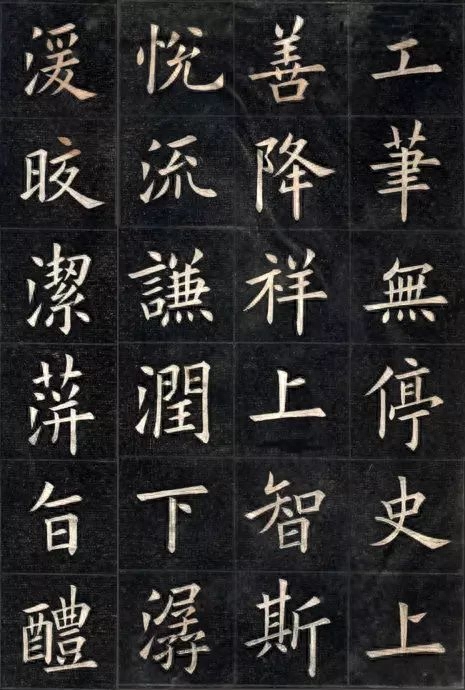 工筆無停史上
善降祥上智斯
悅流謙潤下潺
湲皎潔蓱旨醴